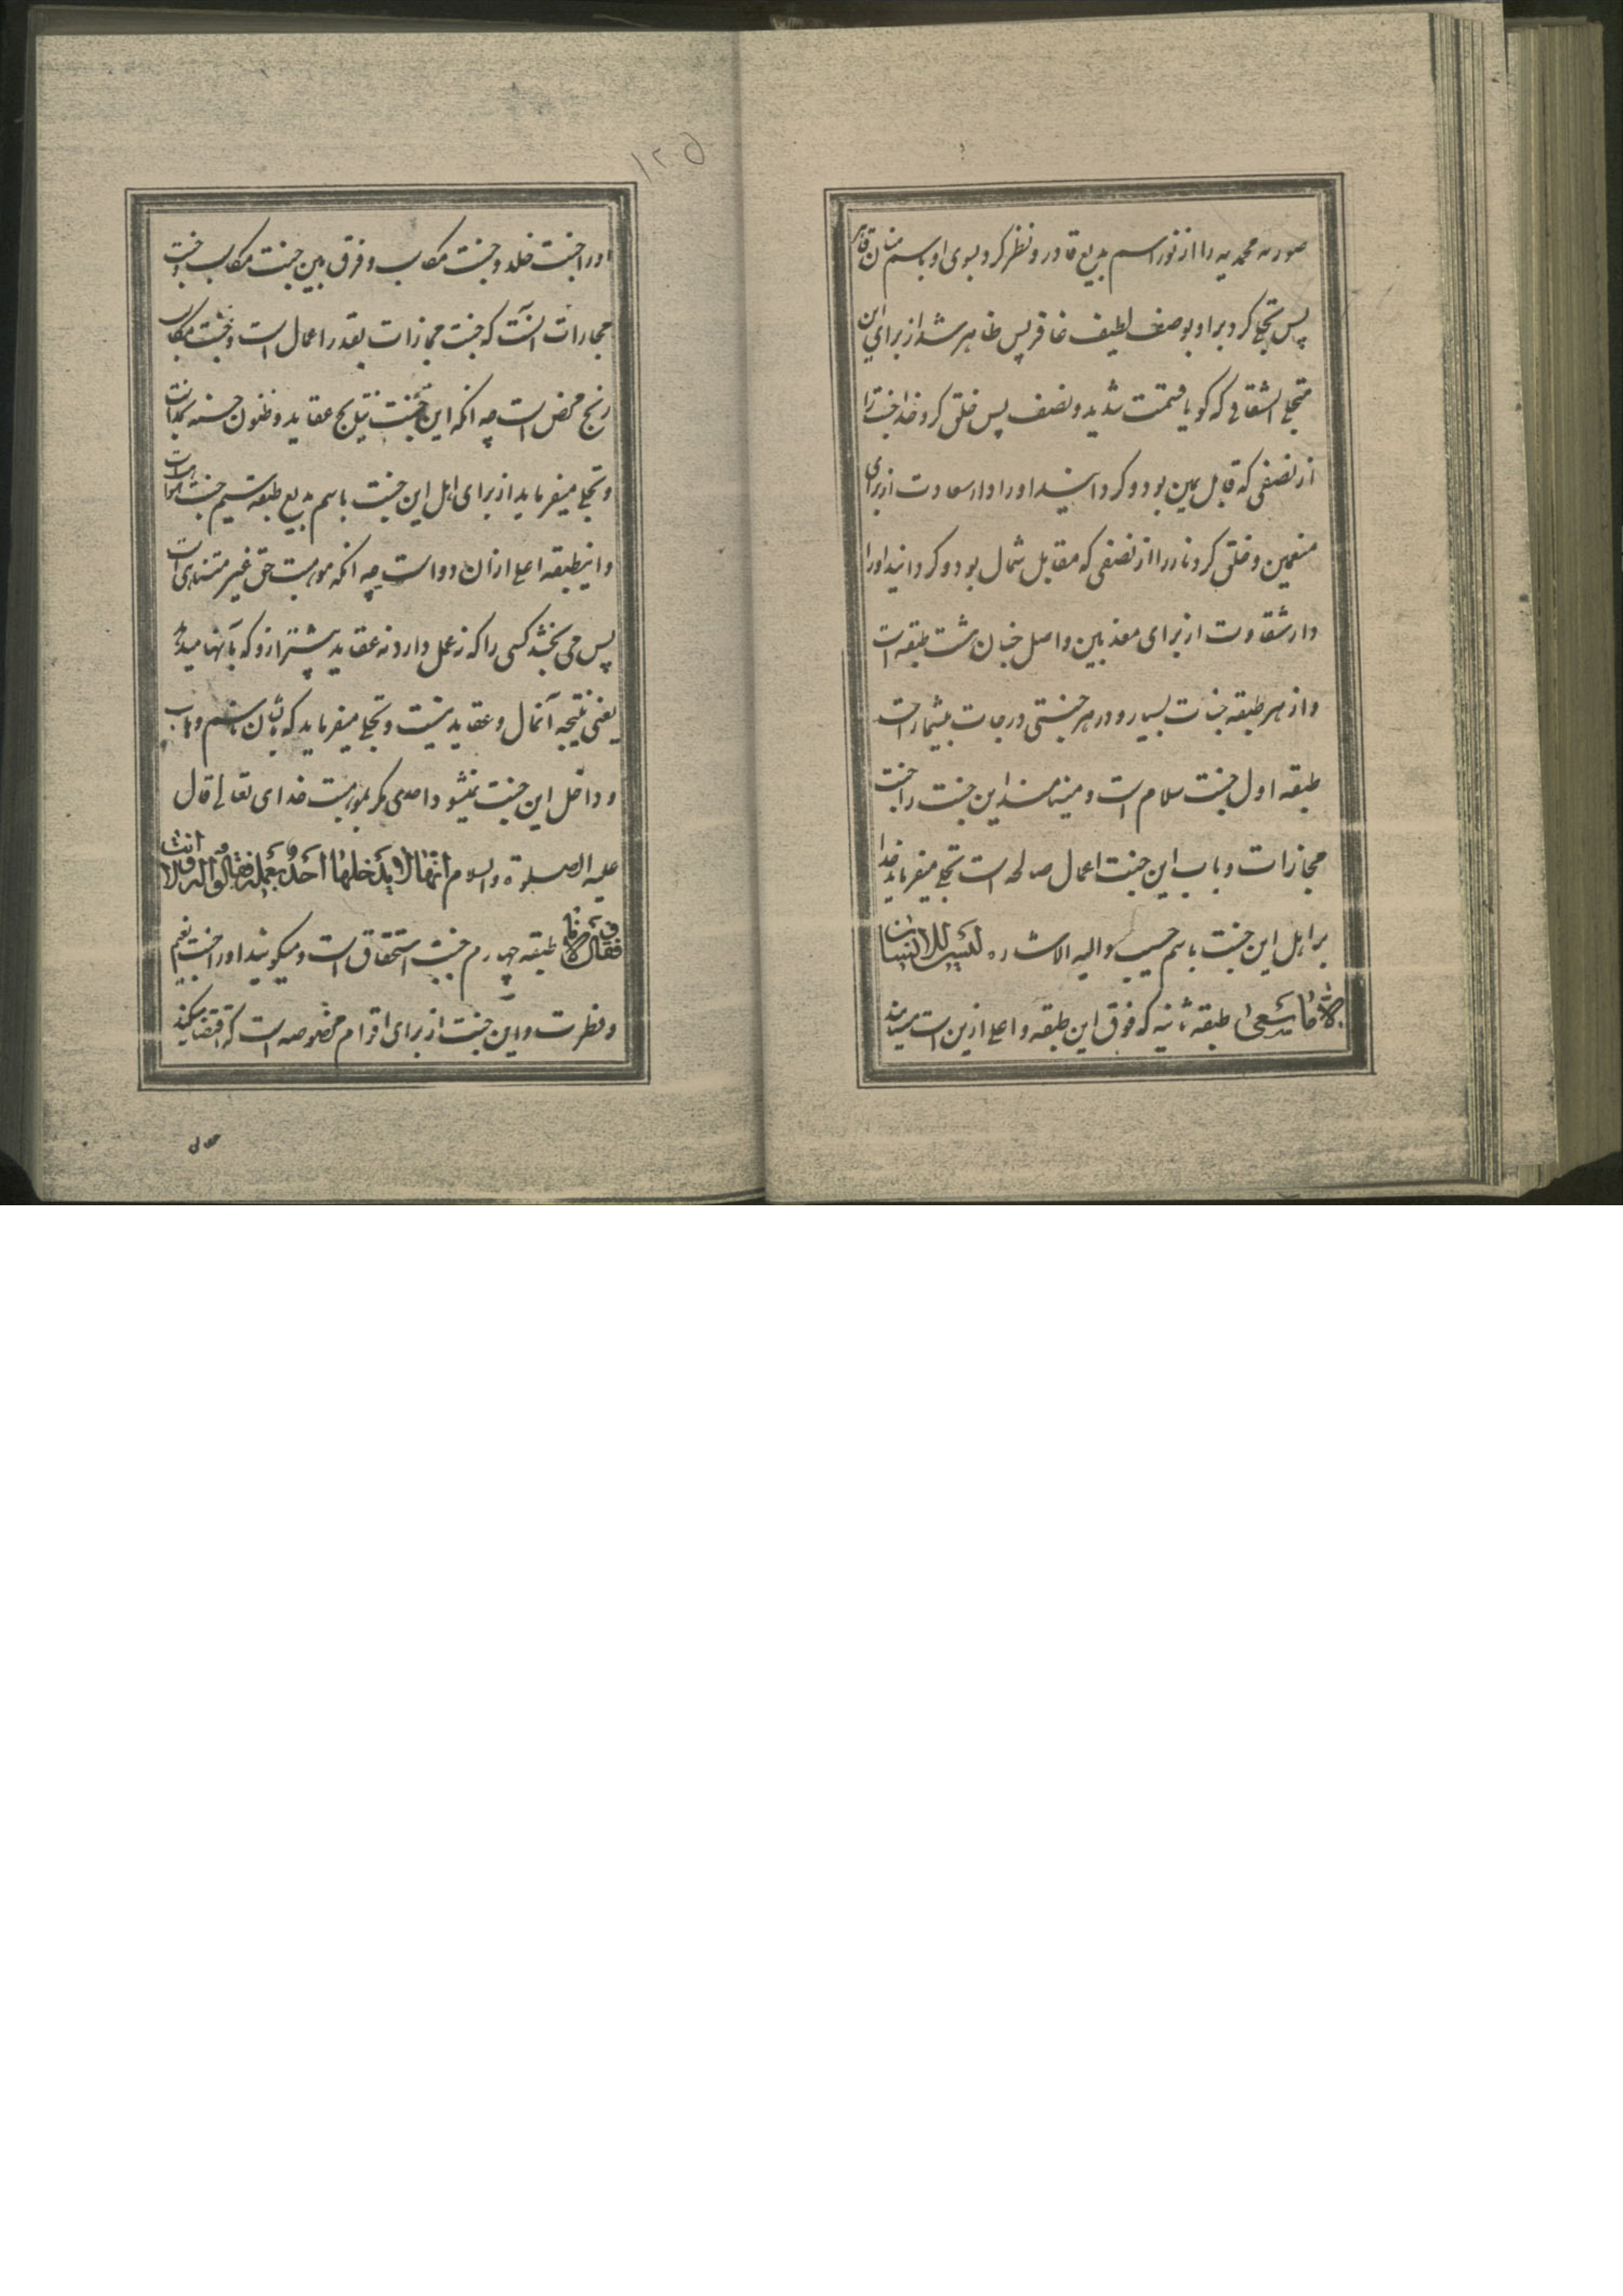 صورت محمدیه را از نور اسم بدیع قادر و نظر کرد بسوی او باسم منان قاهر
پس تجلی کرد بر او بوصف لطیف غافر پس ظاهر شد از برای این
تجلی انشقاقی که کویا قسمت شدید و نصف پس خلق کرد خدا جنت را
از نصفی که قابل یمین بود و کردانید او را دار سعادت از برای
منعمین و خلق کرد نار را از نصفی که مقابل شمال بود و کردانید او را
دار شقاوت از برای معذبین و اصل جنان هشت طبقه است
و از هر طبقه جنات بسیار و در هر جنتی درجات بیشمار است
طبقه اول جنت سلام است و مینامند این جنت را جنت
مجازات و باب این جنت اعمال صالحه است تجلی میفرماید خدا
بر اهل این جنت باسم حسیب و الیه الاشاره لَیْسَ للاِنسان
اِلاّ مٰا سَعیٰ طبقه ثانیه که فوق این طبقه و اعلی ازین است مینامند
۱۲۵
او را جنت خلد و جنت مکاسب و فرق بین جنت مکاسب و جنت
مجازات آنست که جنت مجازات بقدر اعمال است و جنت مکاسب
ربح محض است چه آنکه این جنت نتایج عقاید و ظنون حسنه بخدا است
و تجلی میفرماید از برای اهل این جنت باسم بدیع طبقه سیم جنت المواهب است
و اینطبقه اعلی از ان دو است چه آنکه موهبت حق غیر متناهی است
پس می بخشد کسی را که نه عمل دارد نه عقاید پیشتر ازو که بآنها میدهد
یعنی نتیجه آنمال و عقاید نیست و تجلی میفرماید که بایشان باسم وهاب
و داخل این جنت نمیشود احدی مکر بموهبت خدای تعالی قال
علیه الصلوة و السلام اِنَّهٰا لا یَدْخلهٰا اَحَدٌ بِعَمَلِه فَقٰالُوا له وَلا اَنْتَ
فَقٰالَ وَلا اَنٰا طبقه چهارم جنت استحقاق است و میکویند او را جنت نعیم
و فطرت و این جنت از برای اقوام مخصوصه است که اقتضا میکند